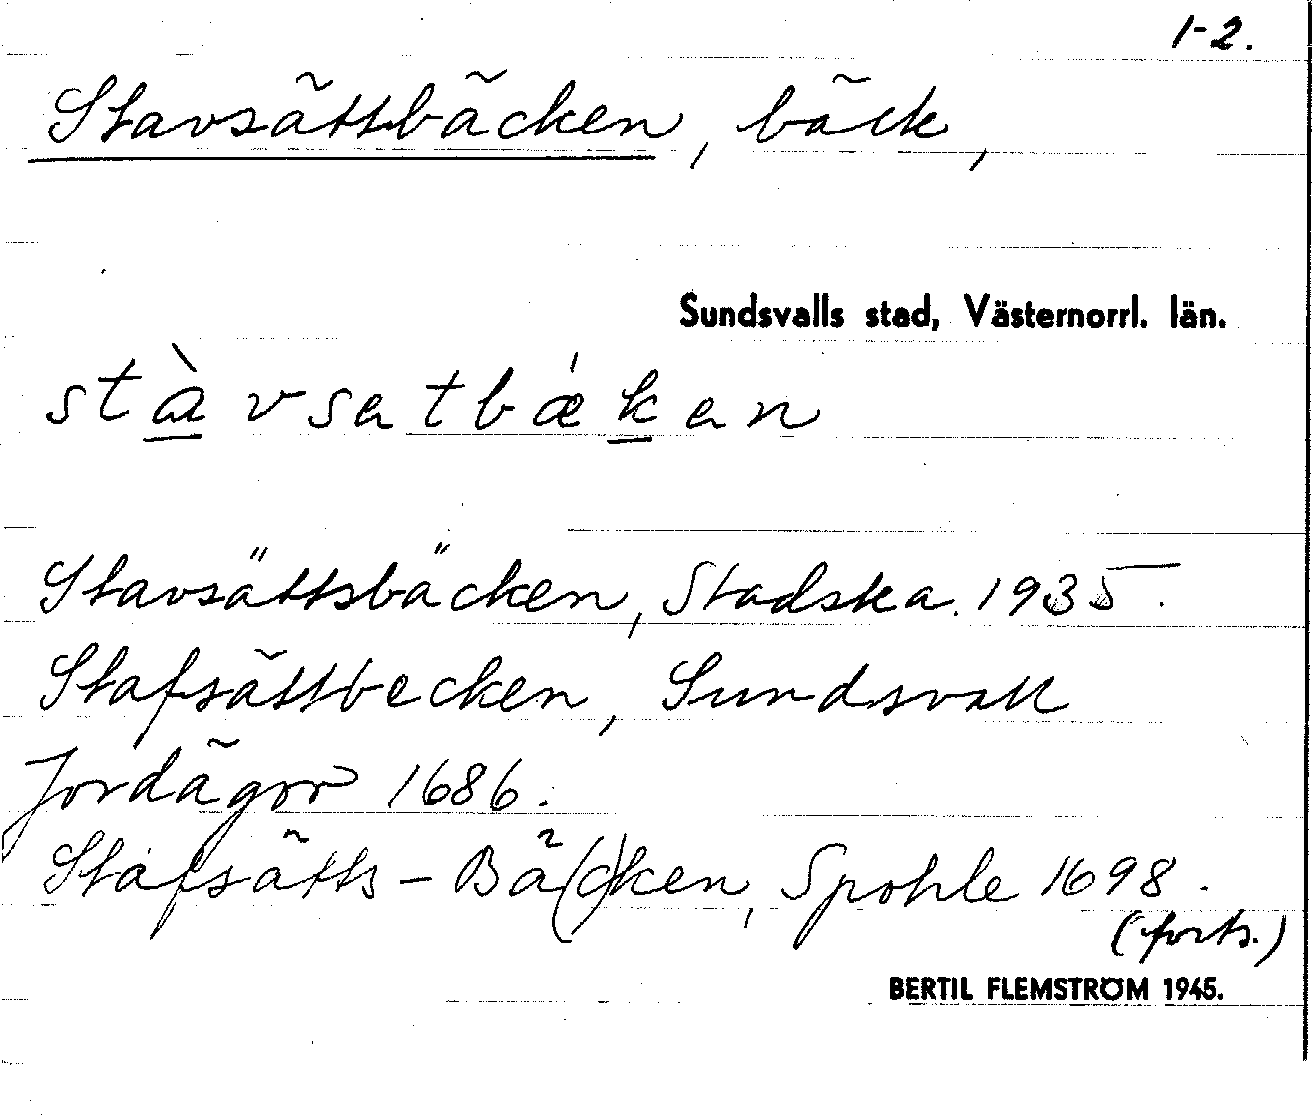 1-2.
Stavsättbäcken, bäck,
Sundsvalls stad, Västernorrl. län.
stàvsatbǽkan
Stavsättsbäcken, Stadska. 1935.
Stafsättbecken, Sundsvall
Jordägor 1686.
Stafsätts-Bä(c)ken, Spohle 1698.
(forts.)
BERTIL FLEMSTRÖM 1945.